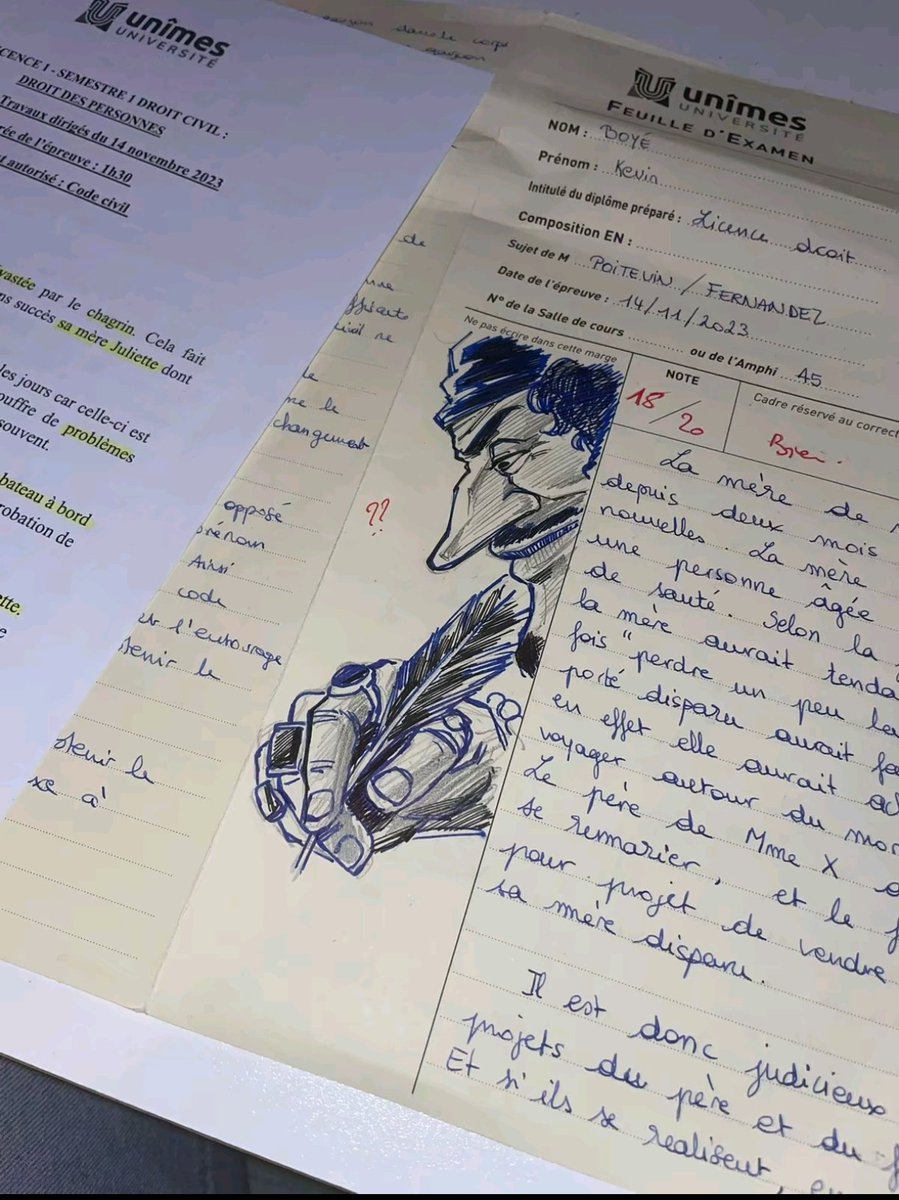 unîmes
UNIVERSITÉ
LICENCE 1 - SEMESTRE 1 DROIT CIVIL :
DROIT DES PERSONNES
Travaux dirigés du 14 novembre 2023
de l'épreuve : 1h30
autorisé : Code civil
par le chagrin. Cela fait
succès sa mère Juliette dont
les jours car celle-ci est
souffre de problèmes
souvent.
bateau à bord
de
dans le corps
de
changement
opposé
prénom
Ainsi
code
l'entourage
le
le
à
unîmes
UNIVERSITÉ
FEUILLE D'EXAMEN
NOM : BOYÉ
Prénom : Kevin
Intitulé du diplôme préparé : Licence droit
Composition EN :
Sujet de M POITEVIN / FERNANDEZ
Date de l'épreuve : 14/11/2023
N° de la Salle de cours ou de l'Amphi A5
Ne pas écrire dans cette marge
NOTE
18/20
Cadre réservé au correct
Bien.
??
La mère de
depuis deux mois
nouvelles. La mère
une personne âgée
de santé. Selon la
la mère aurait tenda
fois "perdre un peu
porté disparu aurait
en effet elle aurait
voyager autour du mon
Le père de Mme X
se remarier, et le
pour projet de vendre
sa mère disparu.
Il est donc judicieux
projets du père et du
Et si ils se réalisent,